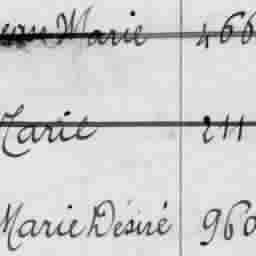 Jean Marie 466
Marie 211
Marie Désiré 960